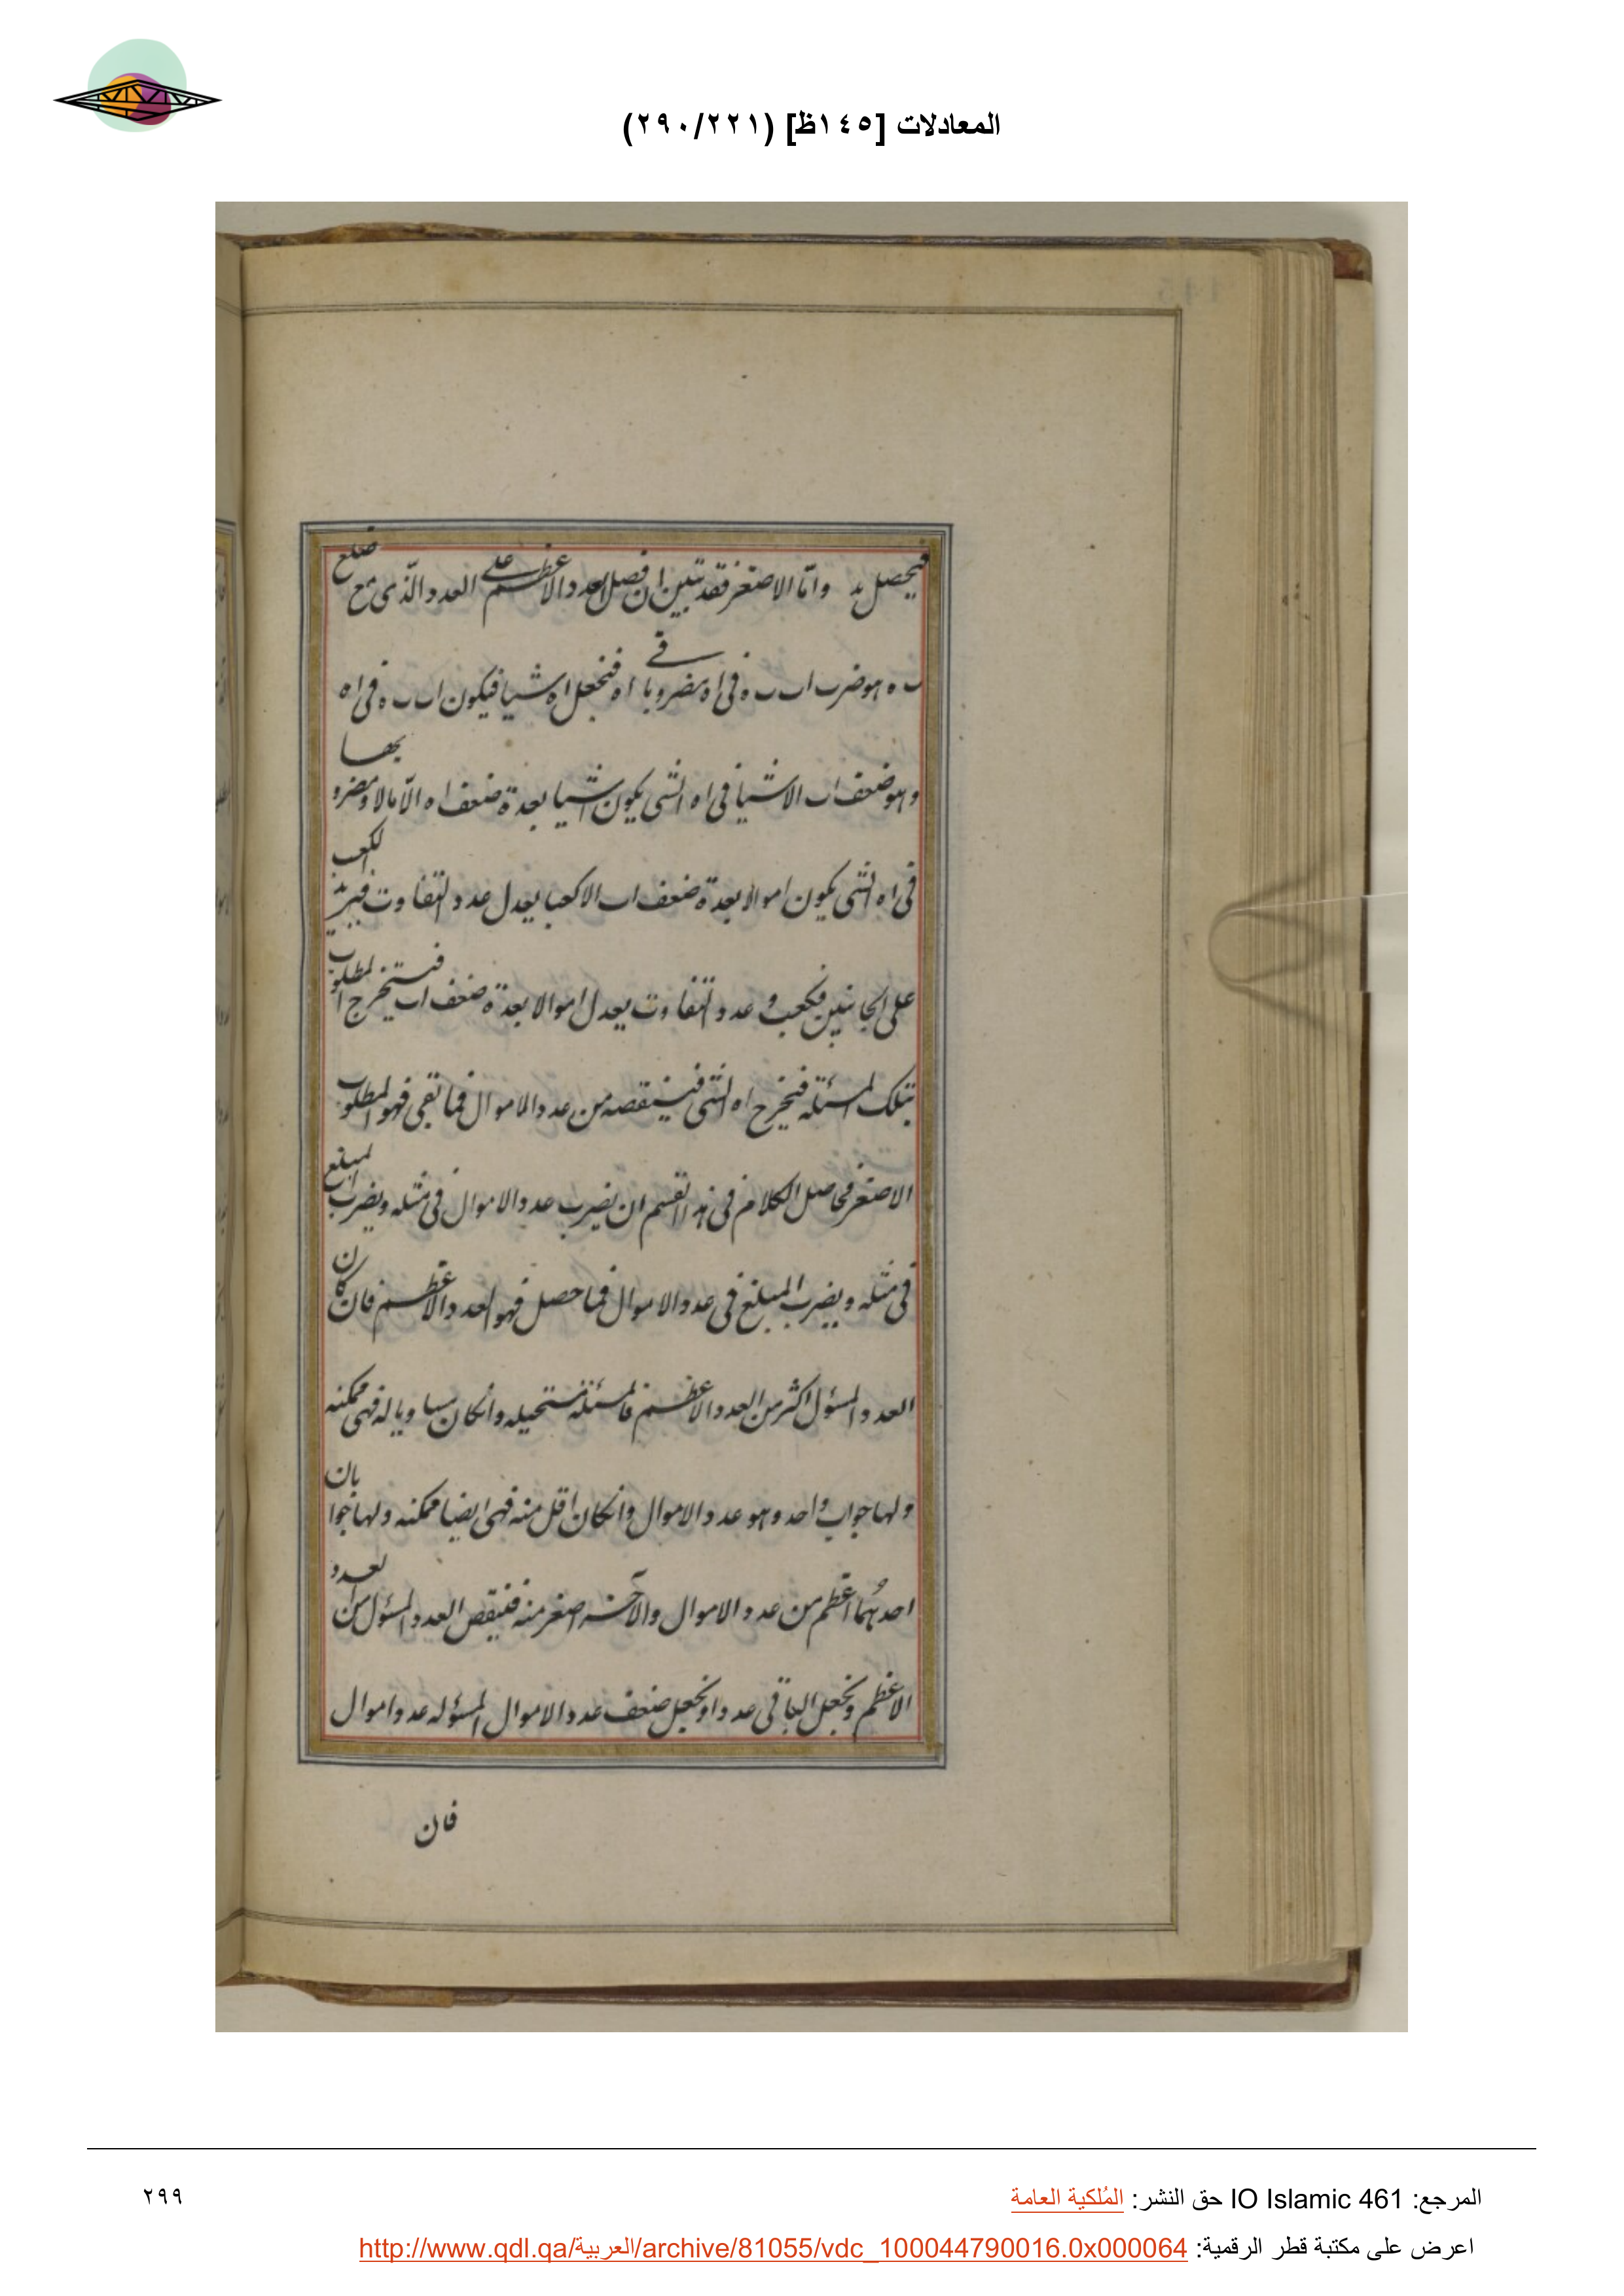 المعادلات [١٤٥ظ] (٢٩٠/٢٢١)
فيحصل بد واما الاصغر فقد تبين ان فضل العدد الاعظم على العدد الذى مع ضلع
ب ه هو ضرب اب ب ه فى اه مضروبا فى اه فنجعل اه شيا فيكون اب ب ه فى اه
وهو ضعف اب الا شيا فى اه الشى يكون اشيا بعدة ضعف اه الا مالا ومضروبها
فى اه الشى يكون اموالا بعدة ضعف اب الا كعبا يعدل عدد التفاوت فيزيد الكعب
على الجانبين فكعب وعدد التفاوت يعدل اموالا بعدة ضعف اب فيستخرج المطلوب
بتلك المسئلة فيخرج اه الشى فينقصه من عدد الاموال فما بقى فهو المطلوب
الاصغر فحاصل الكلام فى هذا القسم ان يضرب عدد الاموال فى مثله ويضرب المبلغ
فى مثله ويضرب المبلغ فى عدد الاموال فما حصل فهو العدد الاعظم فان كان
العدد المسئول اكثر من العدد الاعظم فالمسئلة مستحيله وانكان مساويا له فهى ممكنه
ولها جواب واحد وهو عدد الاموال وانكان اقل منه فهى ايضا ممكنه ولها جوابان
احدهما اعظم من عدد الاموال والآخر اصغر منه فينقص العدد المسئول من العدد
الاعظم ونجعل الباقى عددا ونجعل ضعف عدد الاموال المسئوله عدد اموال
فان
المرجع: IO Islamic 461 حق النشر: المُلكية العامة
٢٩٩
اعرض على مكتبة قطر الرقمية: http://www.qdl.qa/العربية/archive/81055/vdc_100044790016.0x000064